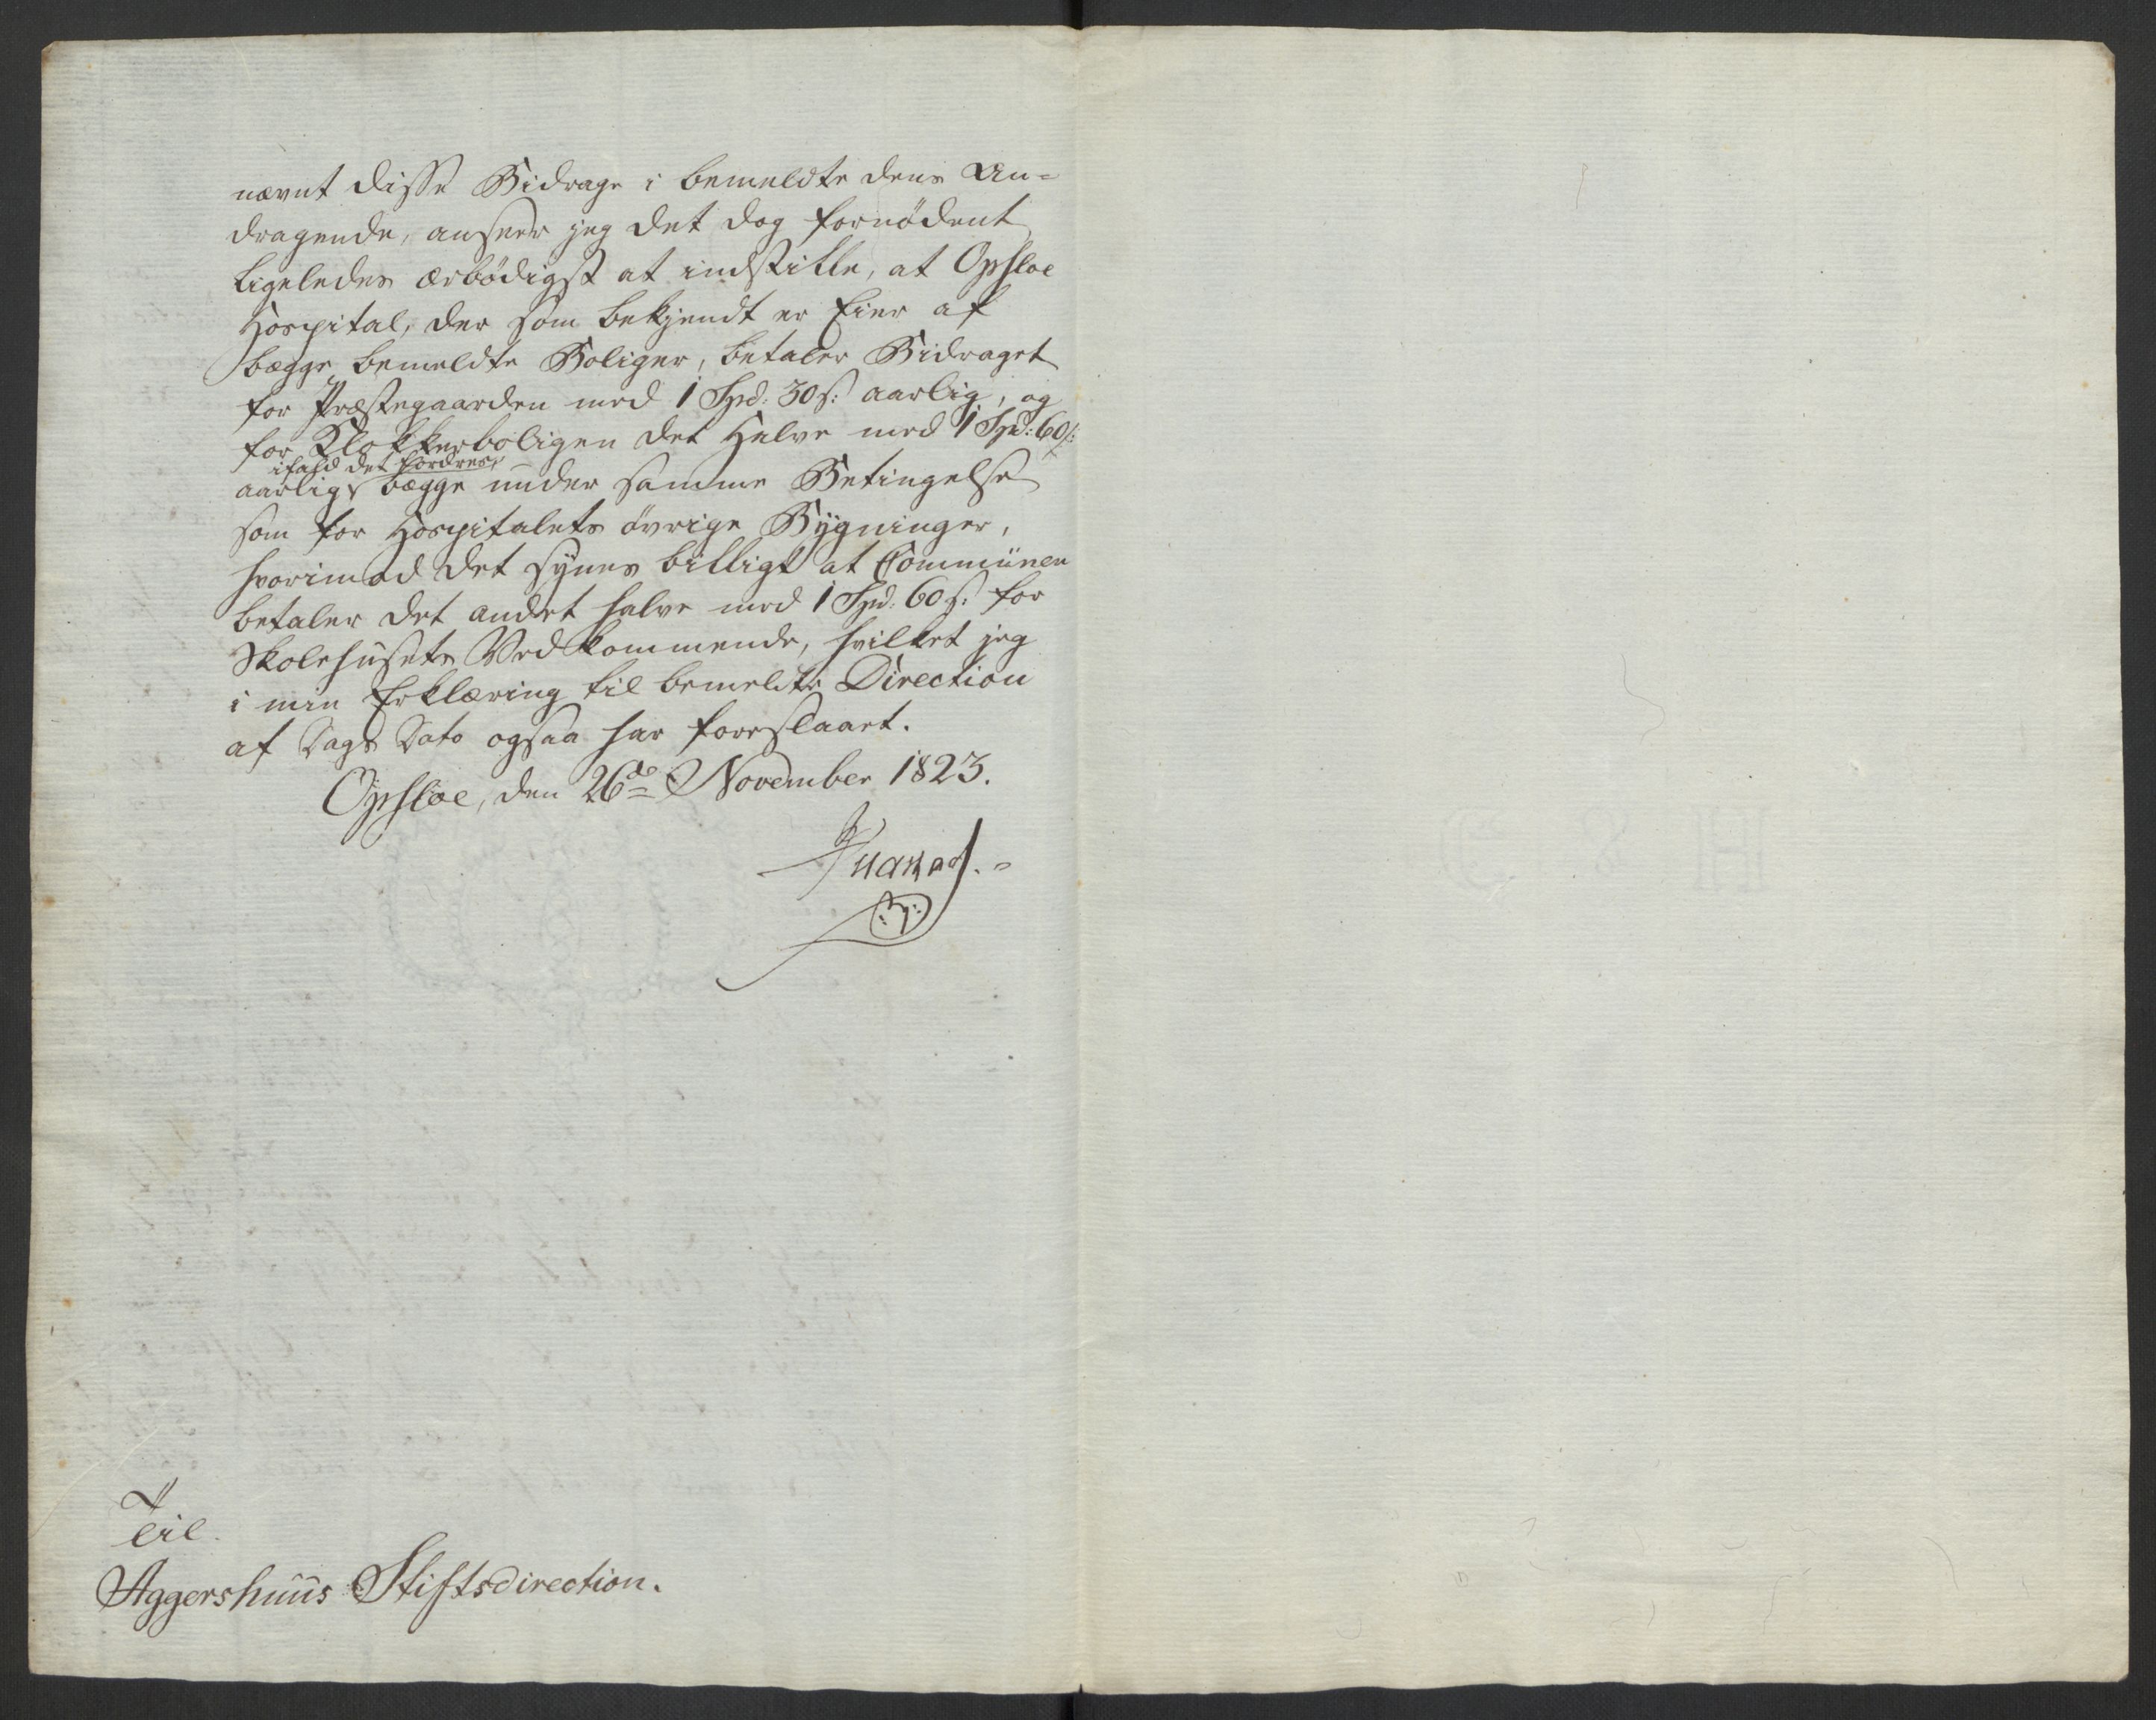 nævnt disse Bidrage i bemeldte dens An-
dragende, anseer jeg det dog fornödent
ligeledes ærbödigst at indstille, at Opsloe
Hospital, der som bekjendt er Eier af
begge bemeldte Boliger, betaler Bidraget
for Præstegaarden med 1 Spd: 30 s: aarlig, og
for Klokkerboligen det Halve med 1 Spd: 60 s:
ifald det fordres,
aarlig, begge under samme Betingelse
som for Hospitalets övrige Bygninger,
hvorimod det synes billigt at Communen
betaler det andet halve med 1 Spd: 60 s: for
Skolehusets Vedkommende, hvilket jeg
i min Erklæring til bemeldte Direction
af Dags Dato ogsaa har foreslaaet.
Opsloe, den 26de November 1823.
Til
Aggershuus Stiftsdirection.